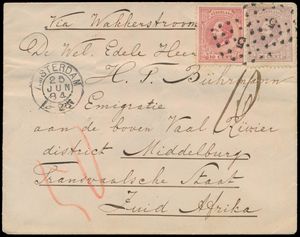 Via Wakkerstroom
De Wel. Edele Heer
H. F. Bührmann
AMSTERDAM
29
JUN
84
Emigratie
aan de boven Vaal Rivier
district Middelburg
Transvaalsche Staat
Zuid Afrika